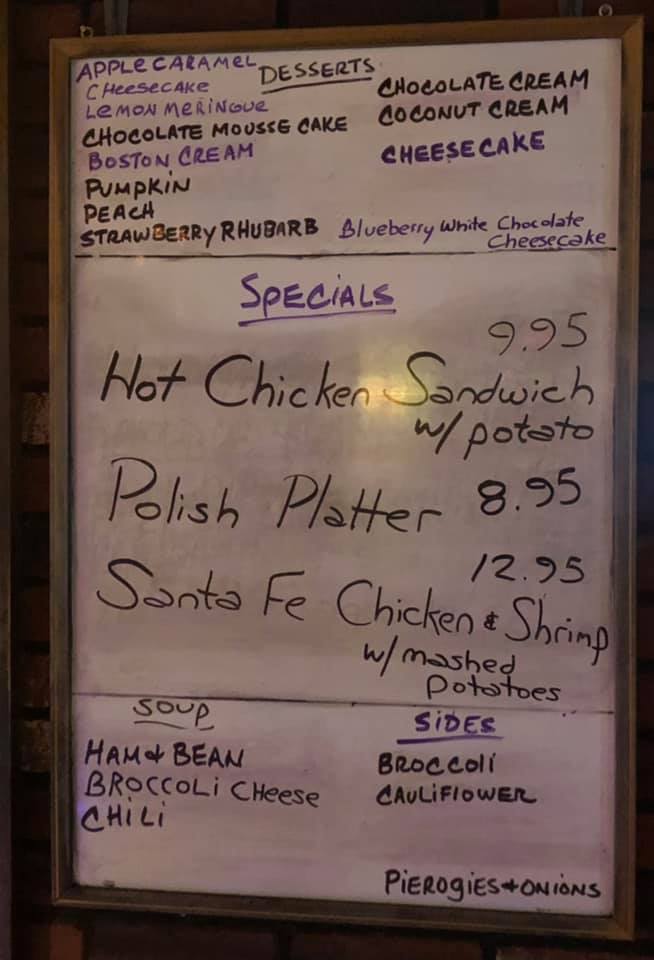 DESSERTS
APPLE CARAMEL
CHEESECAKE
LEMON MERINGUE
CHOCOLATE MOUSSE CAKE
BOSTON CREAM
PUMPKIN
PEACH
STRAWBERRY RHUBARB
CHOCOLATE CREAM
COCONUT CREAM
CHEESECAKE
Blueberry White Chocolate
Cheesecake
SPECIALS
9.95
Hot Chicken Sandwich
w/ potato
Polish Platter 8.95
12.95
Santa Fe Chicken & Shrimp
w/ mashed
potatoes
SOUP
HAM & BEAN
BROCCOLI CHEESE
CHILI
SIDES
BROCCOLI
CAULIFLOWER
PIEROGIES + ONIONS